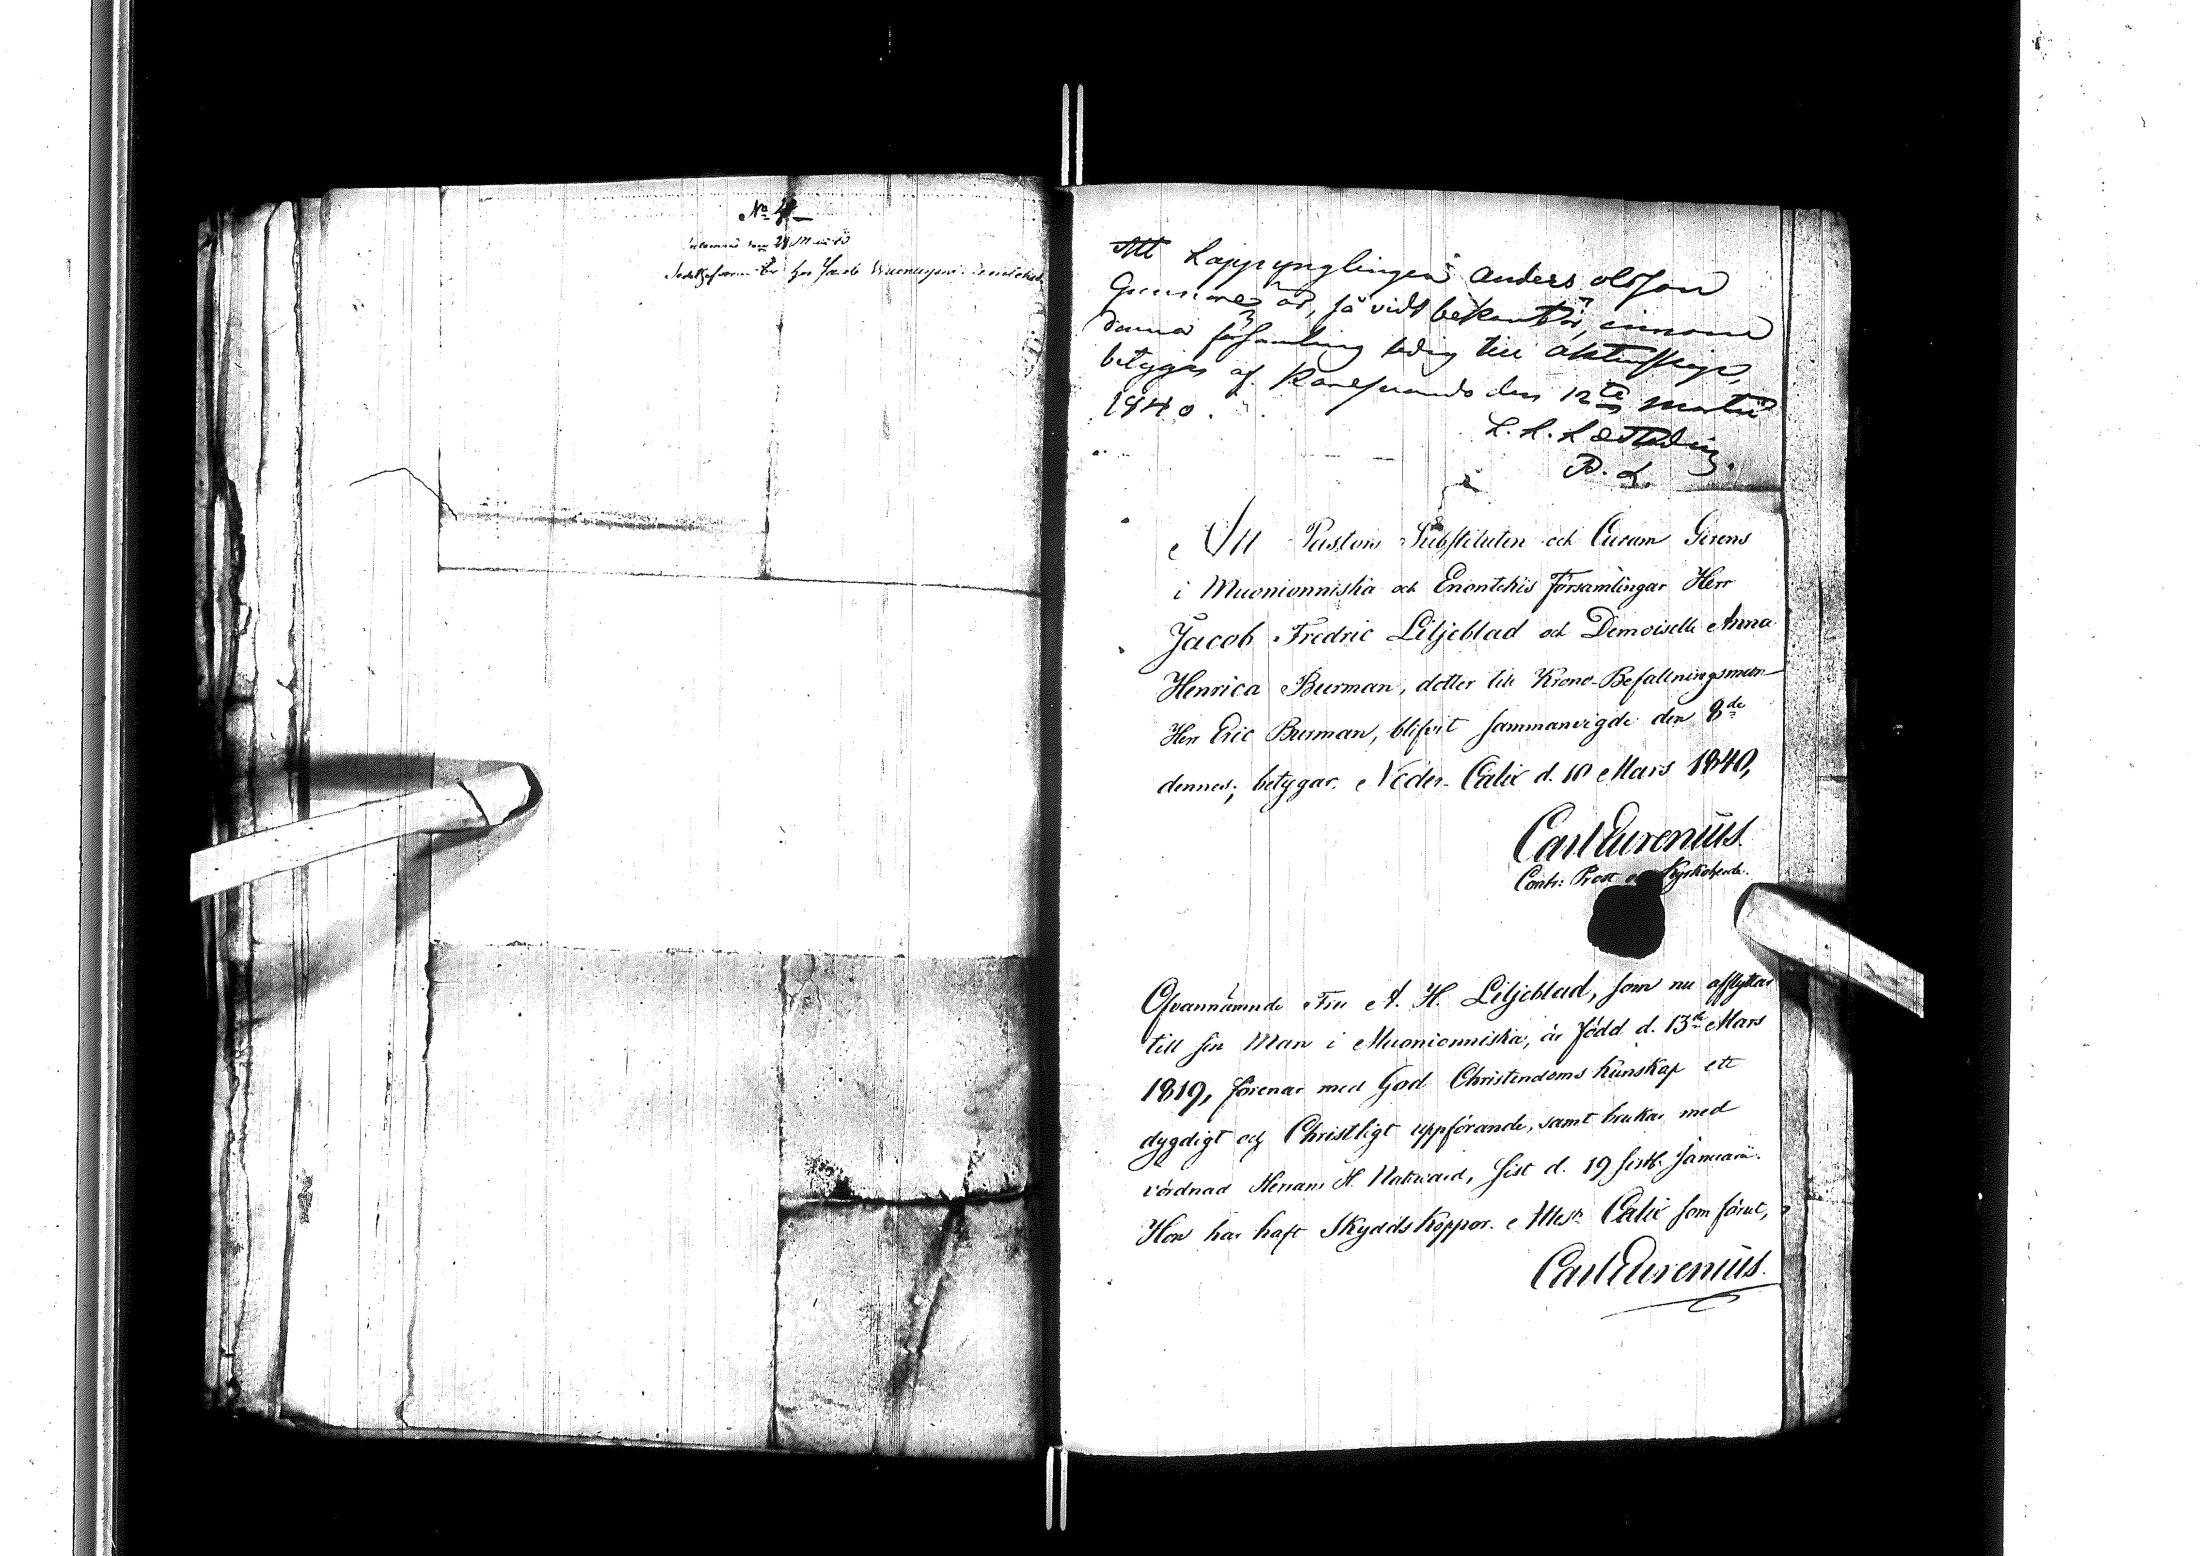 No 4
den 28 Mars 40
hos Jacob
Att Lappynglingen Anders Olsson
är, så vidt bekant är, innom
denna församling ledig till äktenskap,
betygas af Karesuando den 12te Martii
1840.
L. L. Læstadius.
P. L.
Att Pastors Substituten och Curam Gerens
i Muonionniska och Enontekis Församlingar Herr
Jacob Fredric Liljeblad och Demoiselle Anna
Henrica Burman, dotter till Krono-Befallningsman
Herr Eric Burman, blifvit sammanvigde den 8de
dennes, betygar. Neder-Calix d. 10 Mars 1840,
Carl Eurenius.
Contr: Prost Kyrkoherde.
Ofvannämnde Fru A. H. Liljeblad, som nu afflyttar
till sin Man i Muonionniska, är född d. 13de Mars
1819, förenar med God Christendoms kunskap ett
dygdigt och Christligt uppförande, samt brukar med
vördnad Herrans H. Nattvard, sist d. 19 sistl. Januarii.
Hon har haft Skyddskoppor. Attest. Calix som förut,
Carl Eurenius.